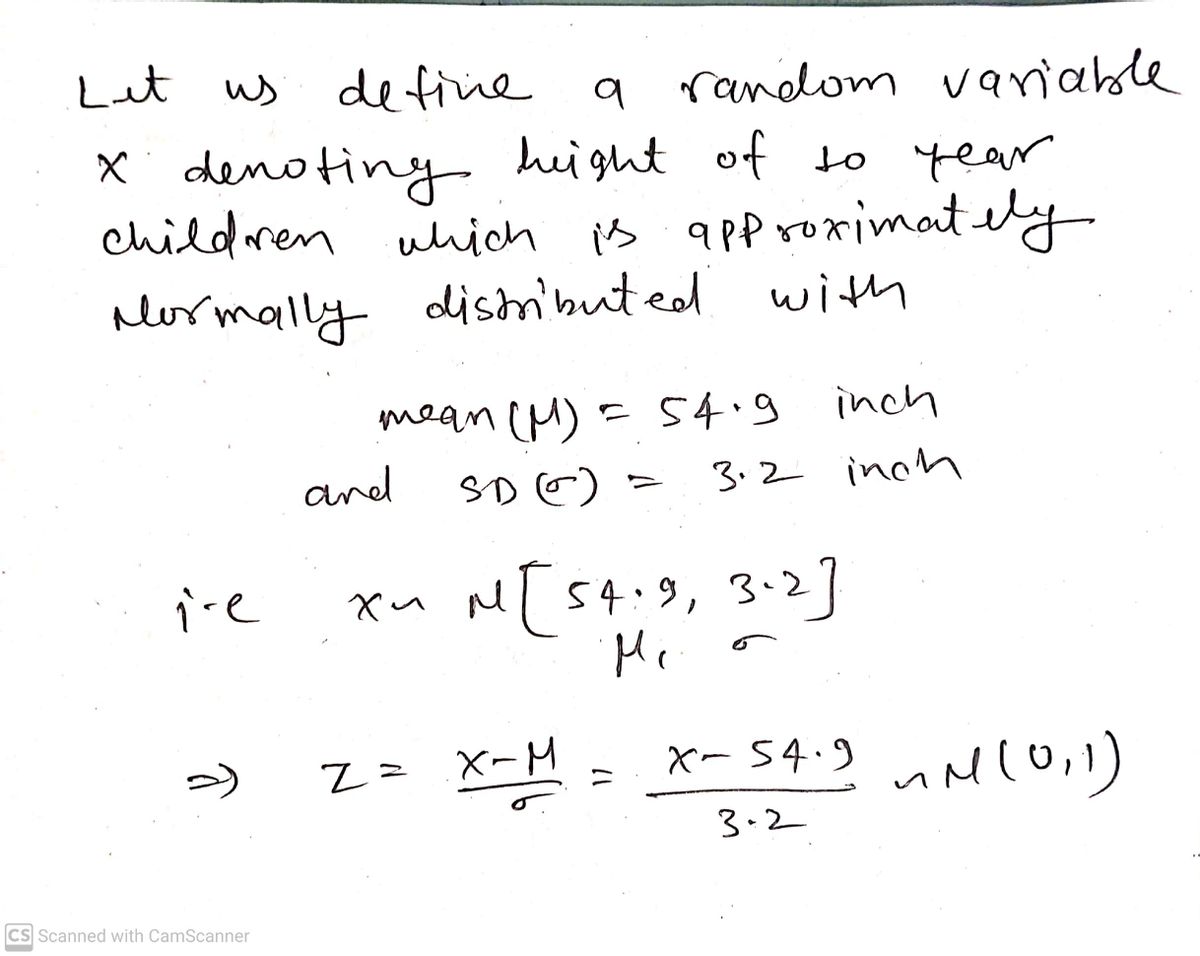 Let us define a random variable
X denoting height of 10 year
children which is approximately
Normally distributed with
mean (μ) = 54.9 inch
and SD (σ) = 3.2 inch
i.e X ~ N[54.9, 3.2]
μ, σ
⇒ Z = X-μ/σ = X-54.9/3.2 ~ N(0,1)
CS Scanned with CamScanner